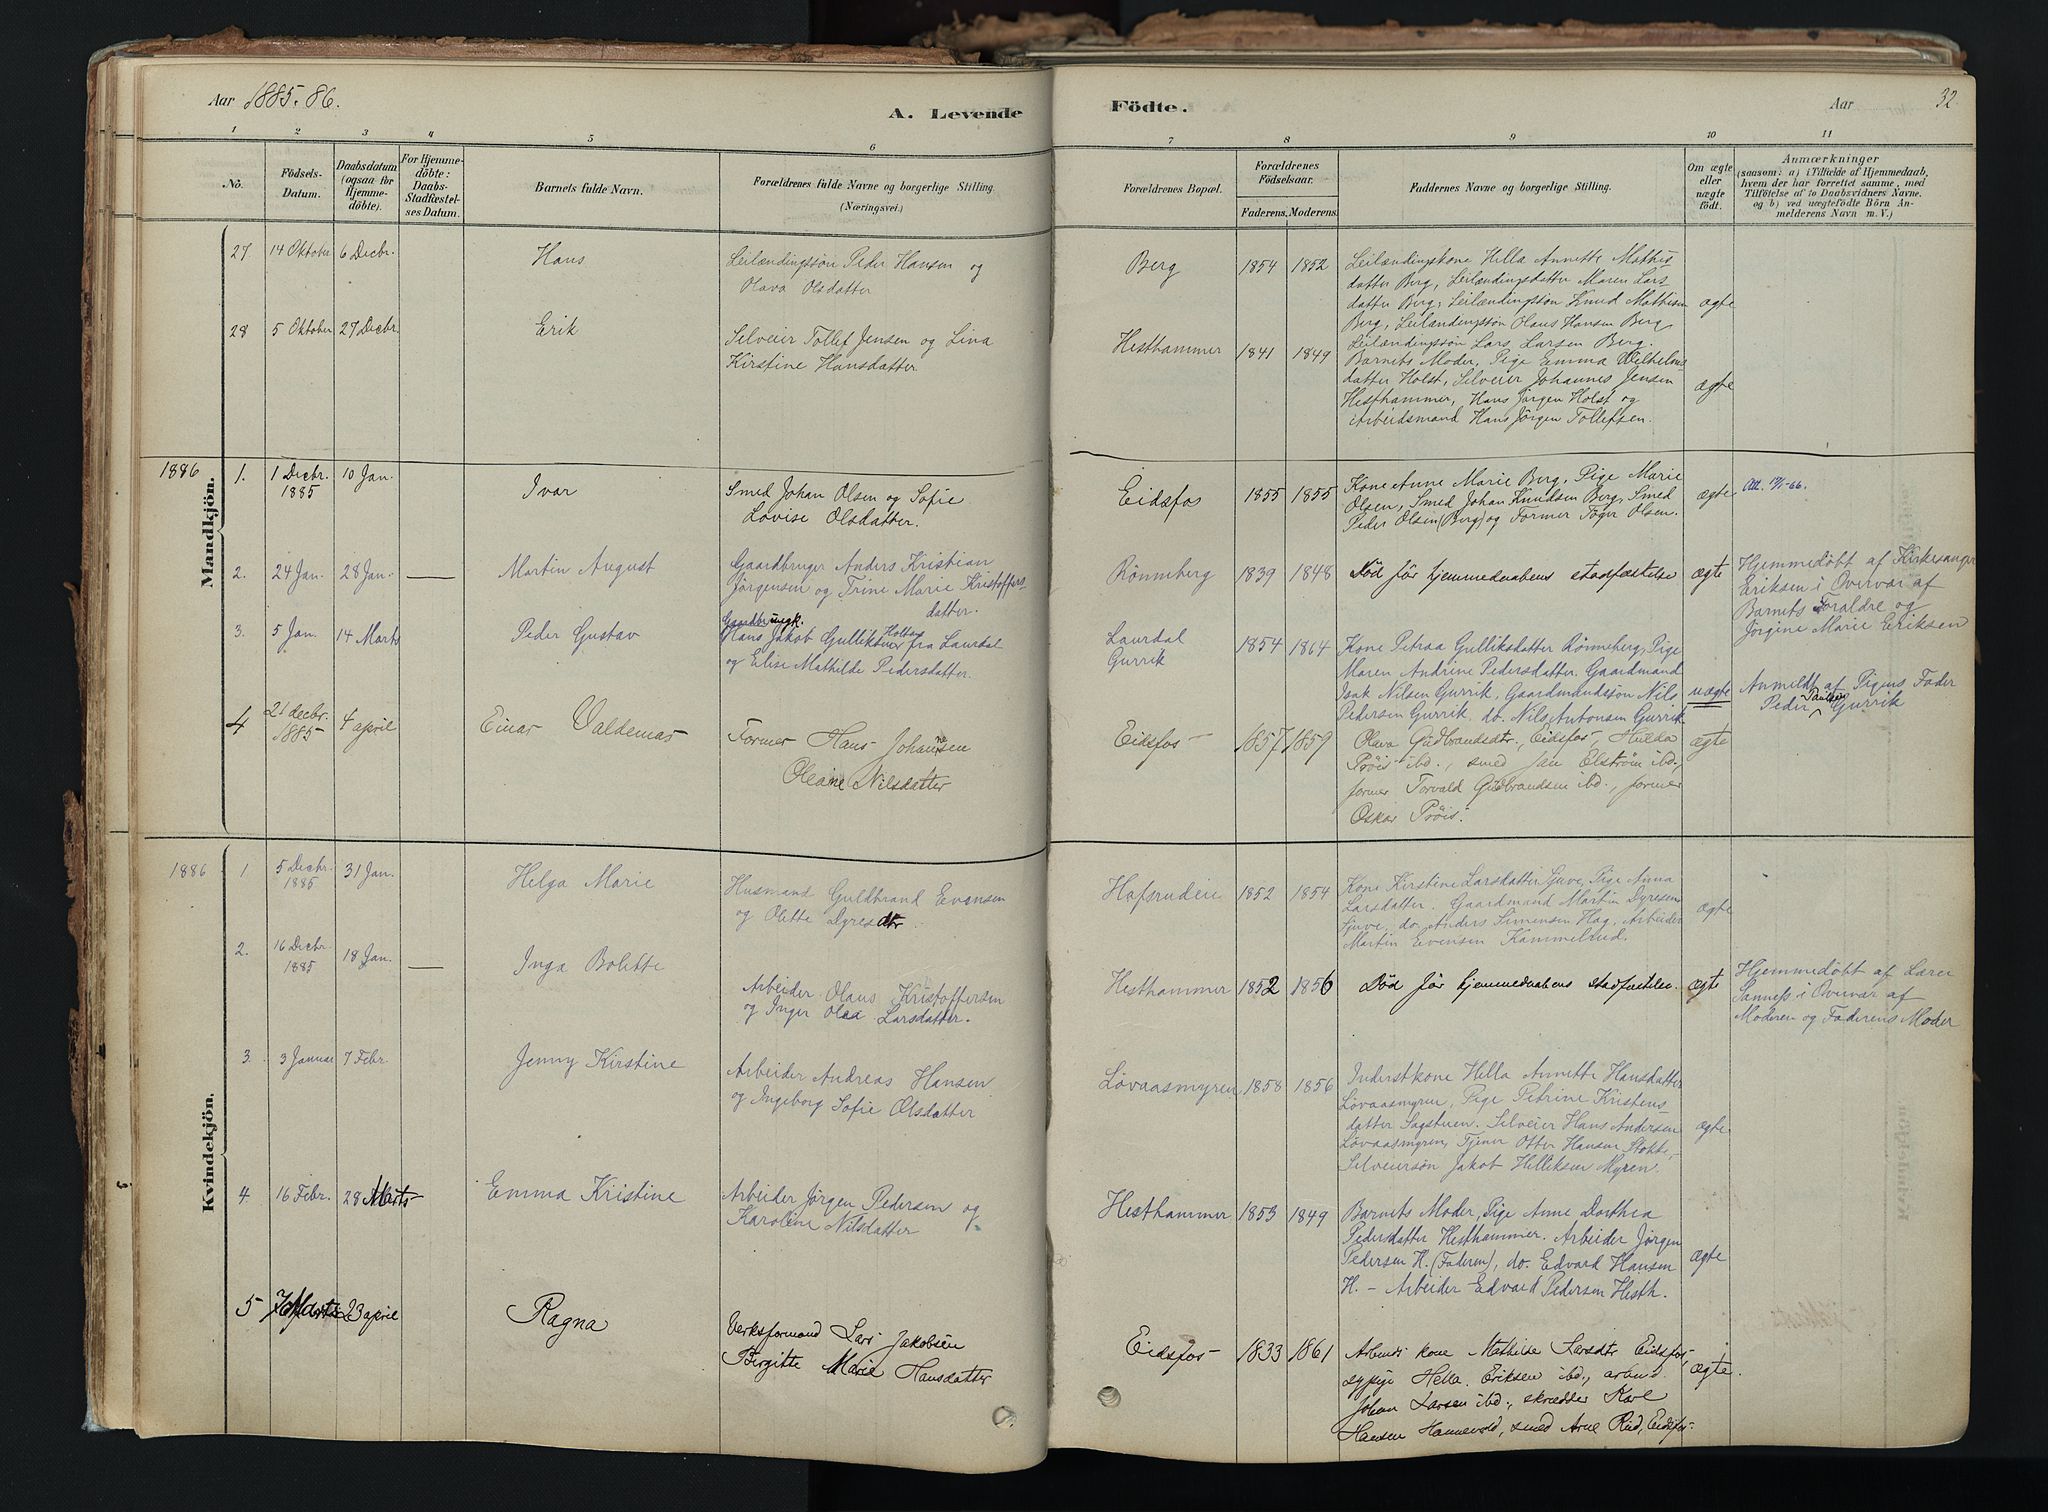 Aar 1885-86.
A. Levende Födte.
Aar 32
1 2 3 4 5 6 7 8 9 10 11
No.
Födsels-Datum.
Daabsdatum (ogsaa for Hjemme-döbte).
For Hjemme-döbte: Daabs-Stadfæstel-ses Datum.
Barnets fulde Navn.
Forældrenes fulde Navne og borgerlige Stilling. (Næringsvei.)
Forældrenes Bopæl.
Forældrenes Födselsaar.
Faderens. Moderens.
Faddernes Navne og borgerlige Stilling.
Om ægte eller uægte födt.
Anmærkninger
(saasom: a) i Tilfælde af Hjemmedaab,
hvem der har forrettet samme, med
Tilföielse af to Daabsvidners Navne,
og b) ved uægtefödte Börn An-
melderens Navn m. V.)
Mandkjön.
27 14 Oktober 6 Decbr. Hans
Leilændingssøn Peder Hansen og
Olava Olsdatter
Berg 1854 1852
Leilændingskone Hella Annette Mathis
datter Berg, Leilændingsdatter Maren Lars
datter Berg, Leilændingssøn Knud Mathisen
Berg, Leilændingssøn Olaus Hansen Berg
Leilændingssøn Lars Larsen Berg.
ægte
28 5 Oktober 27 Decbr. Erik
Selveier Tollef Jensen og Lina
Kirstine Hansdatter
Hesthammer 1841 1849
Barnets Moder, Pige Emma Vilhelms
datter Holst, Selveier Johannes Jensen
Hesthammer, Hans Jørgen Holst og
Arbeidsmand Hans Jørgen Tollefsen.
ægte
1886
1. 1 Decbr. 1885 10 Jan. Ivar
Smed Johan Olsen og Sofie
Lovise Olsdatter.
Eidsfos 1855 1855
Kone Anne Marie Berg, Pige Marie
Olsen, Smed Johan Knudsen Berg, Smed
Peder Olsen (Berg) og Former Toger Olsen.
ægte
2. 24 Jan. 28 Jan. — Martin August
Gaardbruger Anders Kristian
Jørgensen og Trine Marie Kristoffers-
datter.
Rønneberg 1839 1848
Død før hjemmedaabens stadfæstelse
ægte
Hjemmedøbt af Kirkesanger
Eriksen i Overvær af
Barnets Foraldre og
Jørgine Marie Eriksen
3. 5 Jan. 14 Marts Peder Gustav
Hans Jakob Gulliksen fra Laurdal
og Elise Mathilde Pedersdatter.
Laurdal
Gurrik
1854 1864
Kone Petraa Gulliksdatter Rønneberg, Pige
Maren Andrine Pedersdatter. Gaardmand
Isak Nilsen Gurrik, Gaardmandssøn Nils
Pedersen Gurrik, do. Nils Antonsen Gurrik
uægte
Anmeldt af Pigens Fader
Peder Gurrik
4 21 decbr. 1885 4 april Einar Valdemar
Former Hans Johansen
Oleane Nilsdatter
Eidsfos 1857 1859
Olava Gudbrandsdtr., Eidsfos, Hulda
Prøis ibd., smed Jan Elstrøm ibd.,
former Torvald Gudbrandsen ibd., former
Oskar Prøis.
ægte
Kvindekjön.
1886
1 5 Decbr. 1885 31 Jan. Helga Marie
Husmand Guldbrand Evensen
og Olette Dyresdtr.
Hafsrudeie 1852 1854
Kone Kirstine Larsdatter Juve, Pige Anna
Larsdatter. Gaardmand Martin Dyresen
Juve, do. Anders Simensen Hag, Arbeider
Martin Evensen Kammelrud.
ægte
2. 16 Decbr. 1885 18 Jan. — Inga Bolette
Arbeider Olaus Kristoffersen
og Inger Olea Larsdatter.
Hesthammer 1852 1856
Død før hjemmedaabens stadfæstelse.
ægte
Hjemmedøbt af Lærer
Sanness i Overvær af
Moderen og Faderens Moder
3. 3 Januar 7 Febr. Jenny Kirstine
Arbeider Andreas Hansen
og Ingeborg Sofie Olsdatter
Løvaasmyren 1858 1856
Inderstkone Hella Annette Hansdatter
Løvaasmyren, Pige Petrine Kristens-
datter Sagstuen. Selveier Hans Andersen
Løvaasmyren, Tjener Otter Hansen Stokke,
Selveiersøn Jakob Helliksen Myren.
ægte
4. 16 Febr. 28 Marts Emma Kristine
Arbeider Jørgen Pedersen og
Karoline Nilsdatter
Hesthammer 1853 1849
Barnets Moder, Pige Anne Dorthea
Pedersdatter Hesthammer. Arbeider Jørgen
Pedersen H. (Faderen), do. Edvard Hansen
H. – Arbeider Edvard Pedersen Hesth.
ægte
5 7 Marts 23 april Ragna
Verksformand Lars Jakobsen
Birgitte Marie Hansdatter
Eidsfos 1833 1861
kone Mathilde Larsdtr Eidsfos,
Hella Eriksen ibd., arbeid.
Johan Larsen ibd., skrædder Karl
Hansen Hannevold, smed Arne Rud, Eidsfos.
ægte.